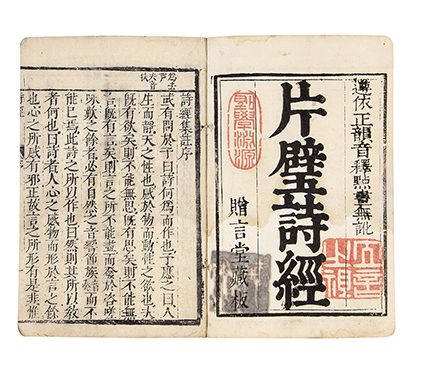 遵依正韻音釋點畫無訛
片璧詩經
贈言堂藏板
詩經集註序
或有問於予曰詩何爲而作也予應之曰人
生而靜天之性也感於物而動性之欲也夫
既有欲矣則不能無思既有思矣則不能無
言既有言矣則言之所不能盡而發於咨嗟
咏歎之餘者必有自然之音響節族而不
能已焉此詩之所以作也曰然則其所以教
者何也曰詩者人心之感物而形於言之餘
也心之所感有邪正故言之所形有是非惟